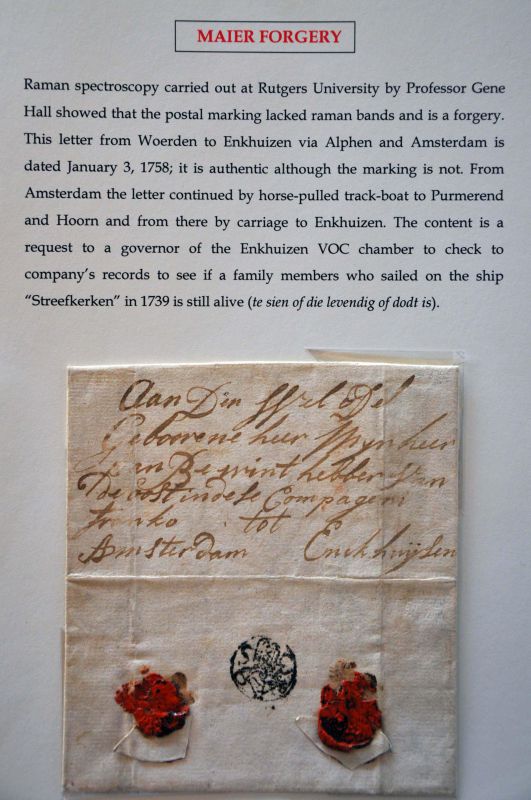 MAIER FORGERY
Raman spectroscopy carried out at Rutgers University by Professor Gene
Hall showed that the postal marking lacked raman bands and is a forgery.
This letter from Woerden to Enkhuizen via Alphen and Amsterdam is
dated January 3, 1758; it is authentic although the marking is not. From
Amsterdam the letter continued by horse-pulled track-boat to Purmerend
and Hoorn and from there by carriage to Enkhuizen. The content is a
request to a governor of the Enkhuizen VOC chamber to check to
company's records to see if a family members who sailed on the ship
"Streefkerken" in 1739 is still alive (te sien of die levendig of dodt is).
Aan Den
Geboorene heer Mynheer
Bewinthebber van
De oostindese Compageni
franko tot
Amsterdam Enckhuijsen